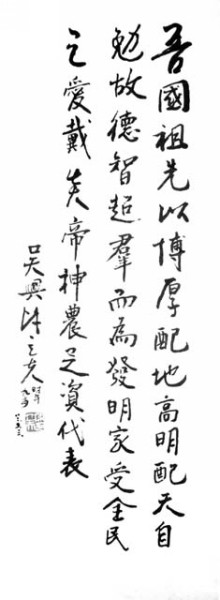 吾國祖先以博厚配地高明配天自
勉故德智超羣而為發明家受全民
之愛戴炎帝神農足資代表
吳興陳立夫